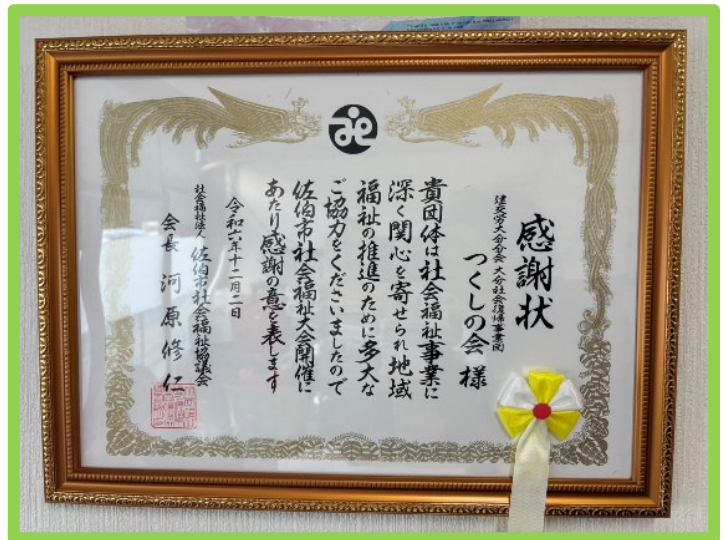 感謝状
建交労大分分会 大分社会復帰事業団
つくしの会 様
貴団体は社会福祉事業に
深く関心を寄せられ地域
福祉の推進のために多大な
ご協力をくださいましたので
佐伯市社会福祉大会開催に
あたり感謝の意を表します
令和六年十二月二日
社会福祉法人 佐伯市社会福祉協議会
会長 河原修仁